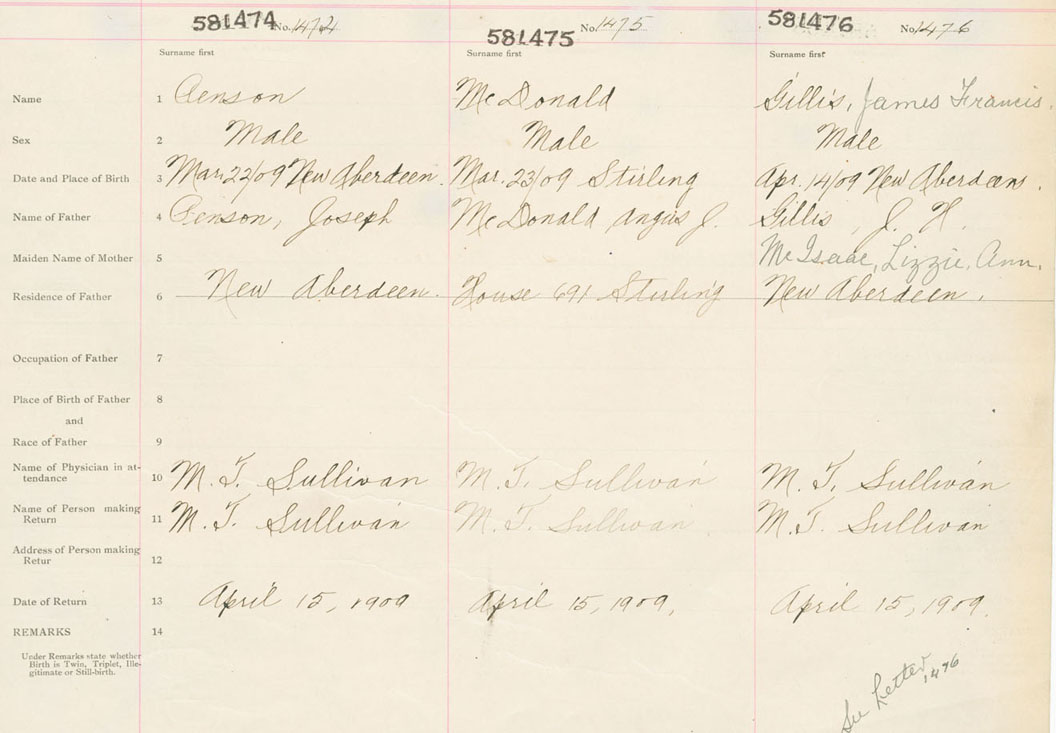 581474 No. 1474 581475 No. 1475 581476 No. 1476
Surname first Surname first Surname first
Name 1 Penson McDonald Gillis, James Francis.
Sex 2 Male Male Male
Date and Place of Birth 3 Mar. 22/09 New Aberdeen. Mar. 23/09 Stirling Apr. 14/09 New Aberdeen.
Name of Father 4 Penson, Joseph McDonald Angus J. Gillis, J. H.
Maiden Name of Mother 5 McIsaac, Lizzie, Ann.
Residence of Father 6 New Aberdeen. House 691 Sterling New Aberdeen.
Occupation of Father 7
Place of Birth of Father 8
and
Race of Father 9
Name of Physician in at-
tendance 10 M. T. Sullivan M. T. Sullivan M. T. Sullivan
Name of Person making
Return 11 M. T. Sullivan M. T. Sullivan M. T. Sullivan
Address of Person making
Retur 12
Date of Return 13 April 15, 1909 April 15, 1909. April 15, 1909.
REMARKS 14
Under Remarks state whether
Birth is Twin, Triplet, Ille-
gitimate or Still-birth.
See Letter 1476